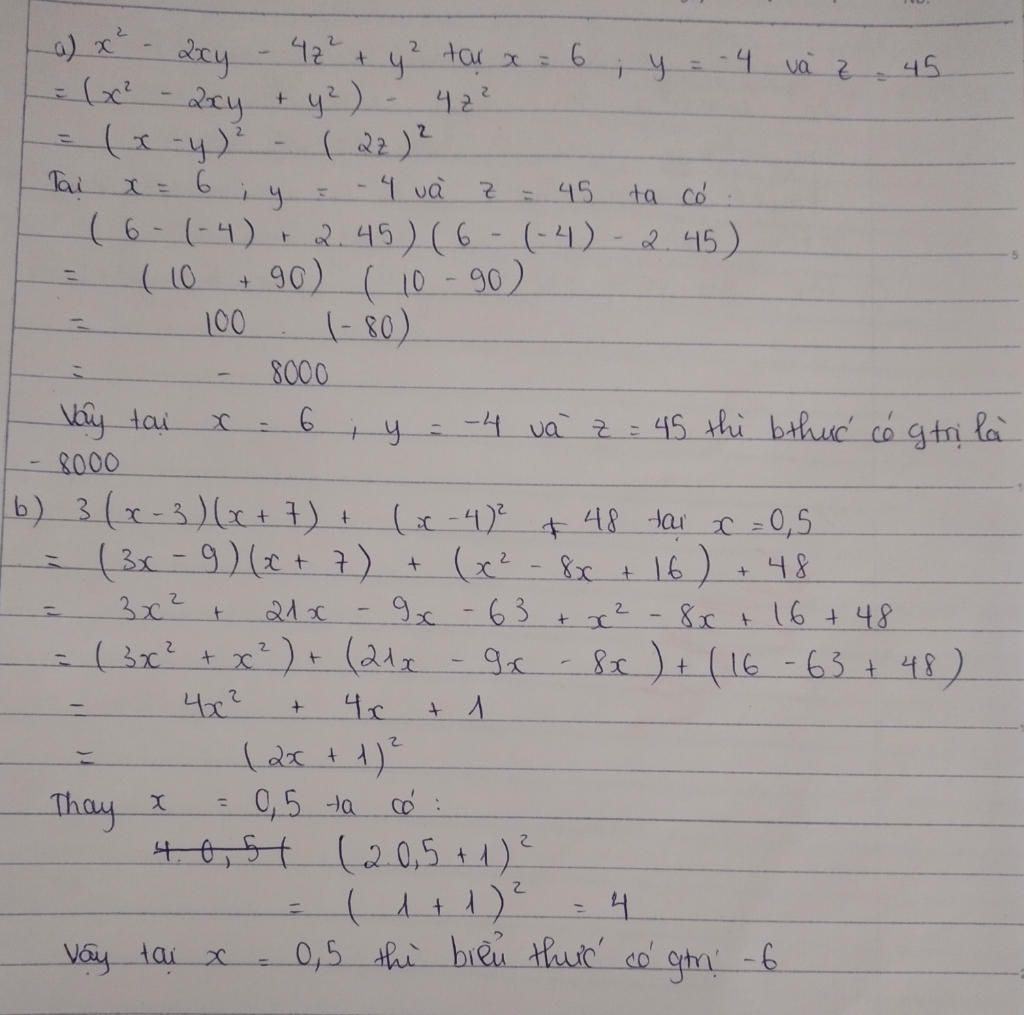 a) x² - 2xy - 4z² + y² tại x = 6 ; y = -4 và z = 45
= (x² - 2xy + y²) - 4z²
= (x - y)² - (2z)²
Tại x = 6 ; y = -4 và z = 45 ta có :
(6 - (-4) + 2.45)(6 - (-4) - 2.45)
= (10 + 90) (10 - 90)
= 100 . (-80)
= - 8000
Vậy tại x = 6 ; y = -4 và z = 45 thì bthức có gtrị là
- 8000
b) 3(x-3)(x+7) + (x-4)² + 48 tại x = 0,5
= (3x - 9)(x + 7) + (x² - 8x + 16) + 48
= 3x² + 21x - 9x - 63 + x² - 8x + 16 + 48
= (3x² + x²) + (21x - 9x - 8x) + (16 - 63 + 48)
= 4x² + 4x + 1
= (2x + 1)²
Thay x = 0,5 ta có :
4. 0,5 + (2.0,5 + 1)²
= (1 + 1)² = 4
Vậy tại x = 0,5 thì biểu thức có gtrị -6